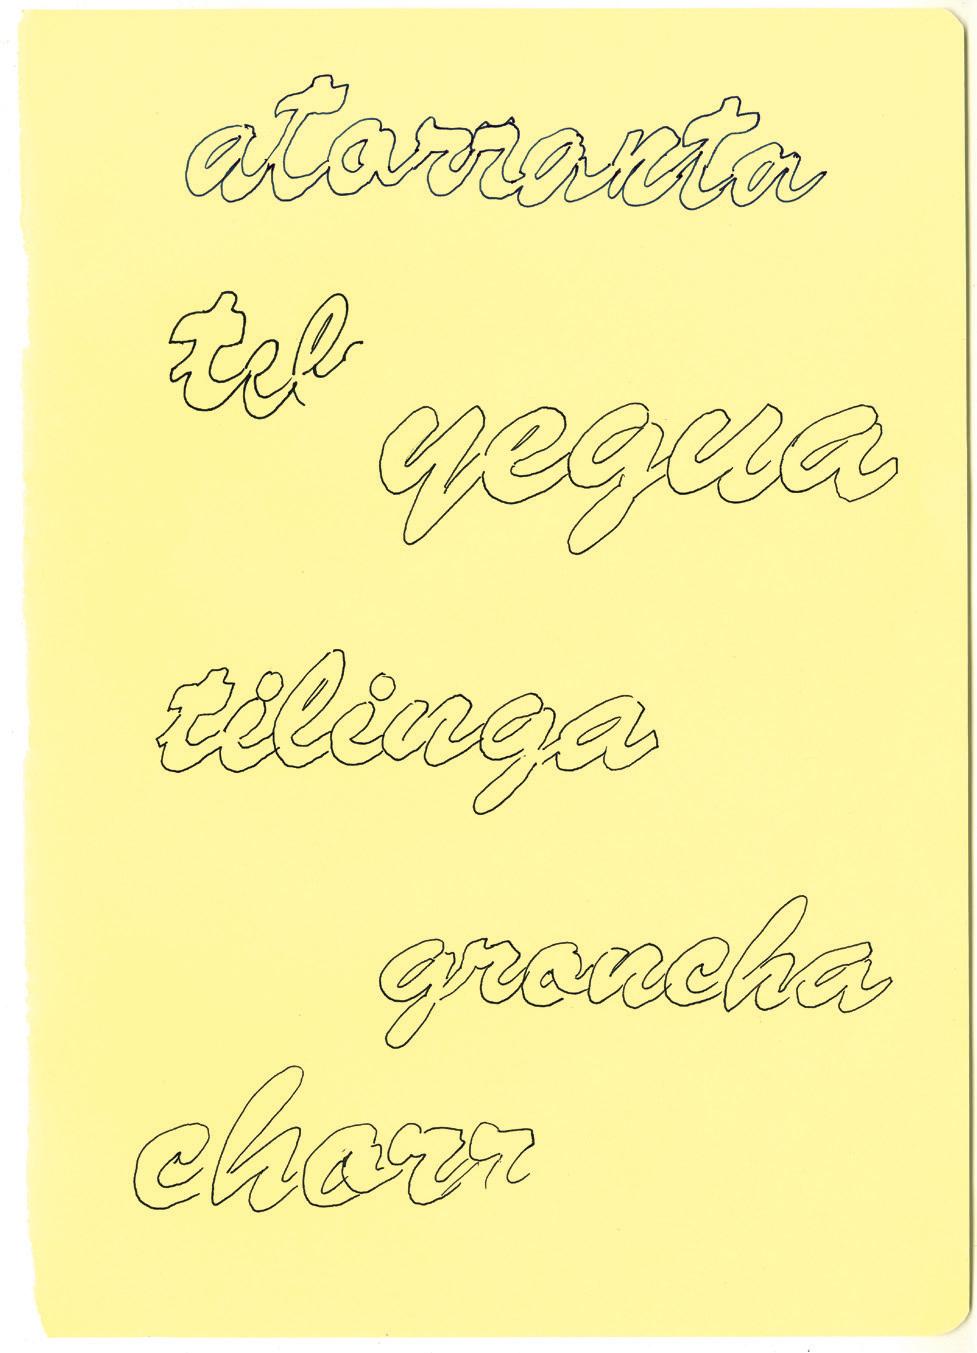 atarranta
til
yegua
tilinga
groncha
charr